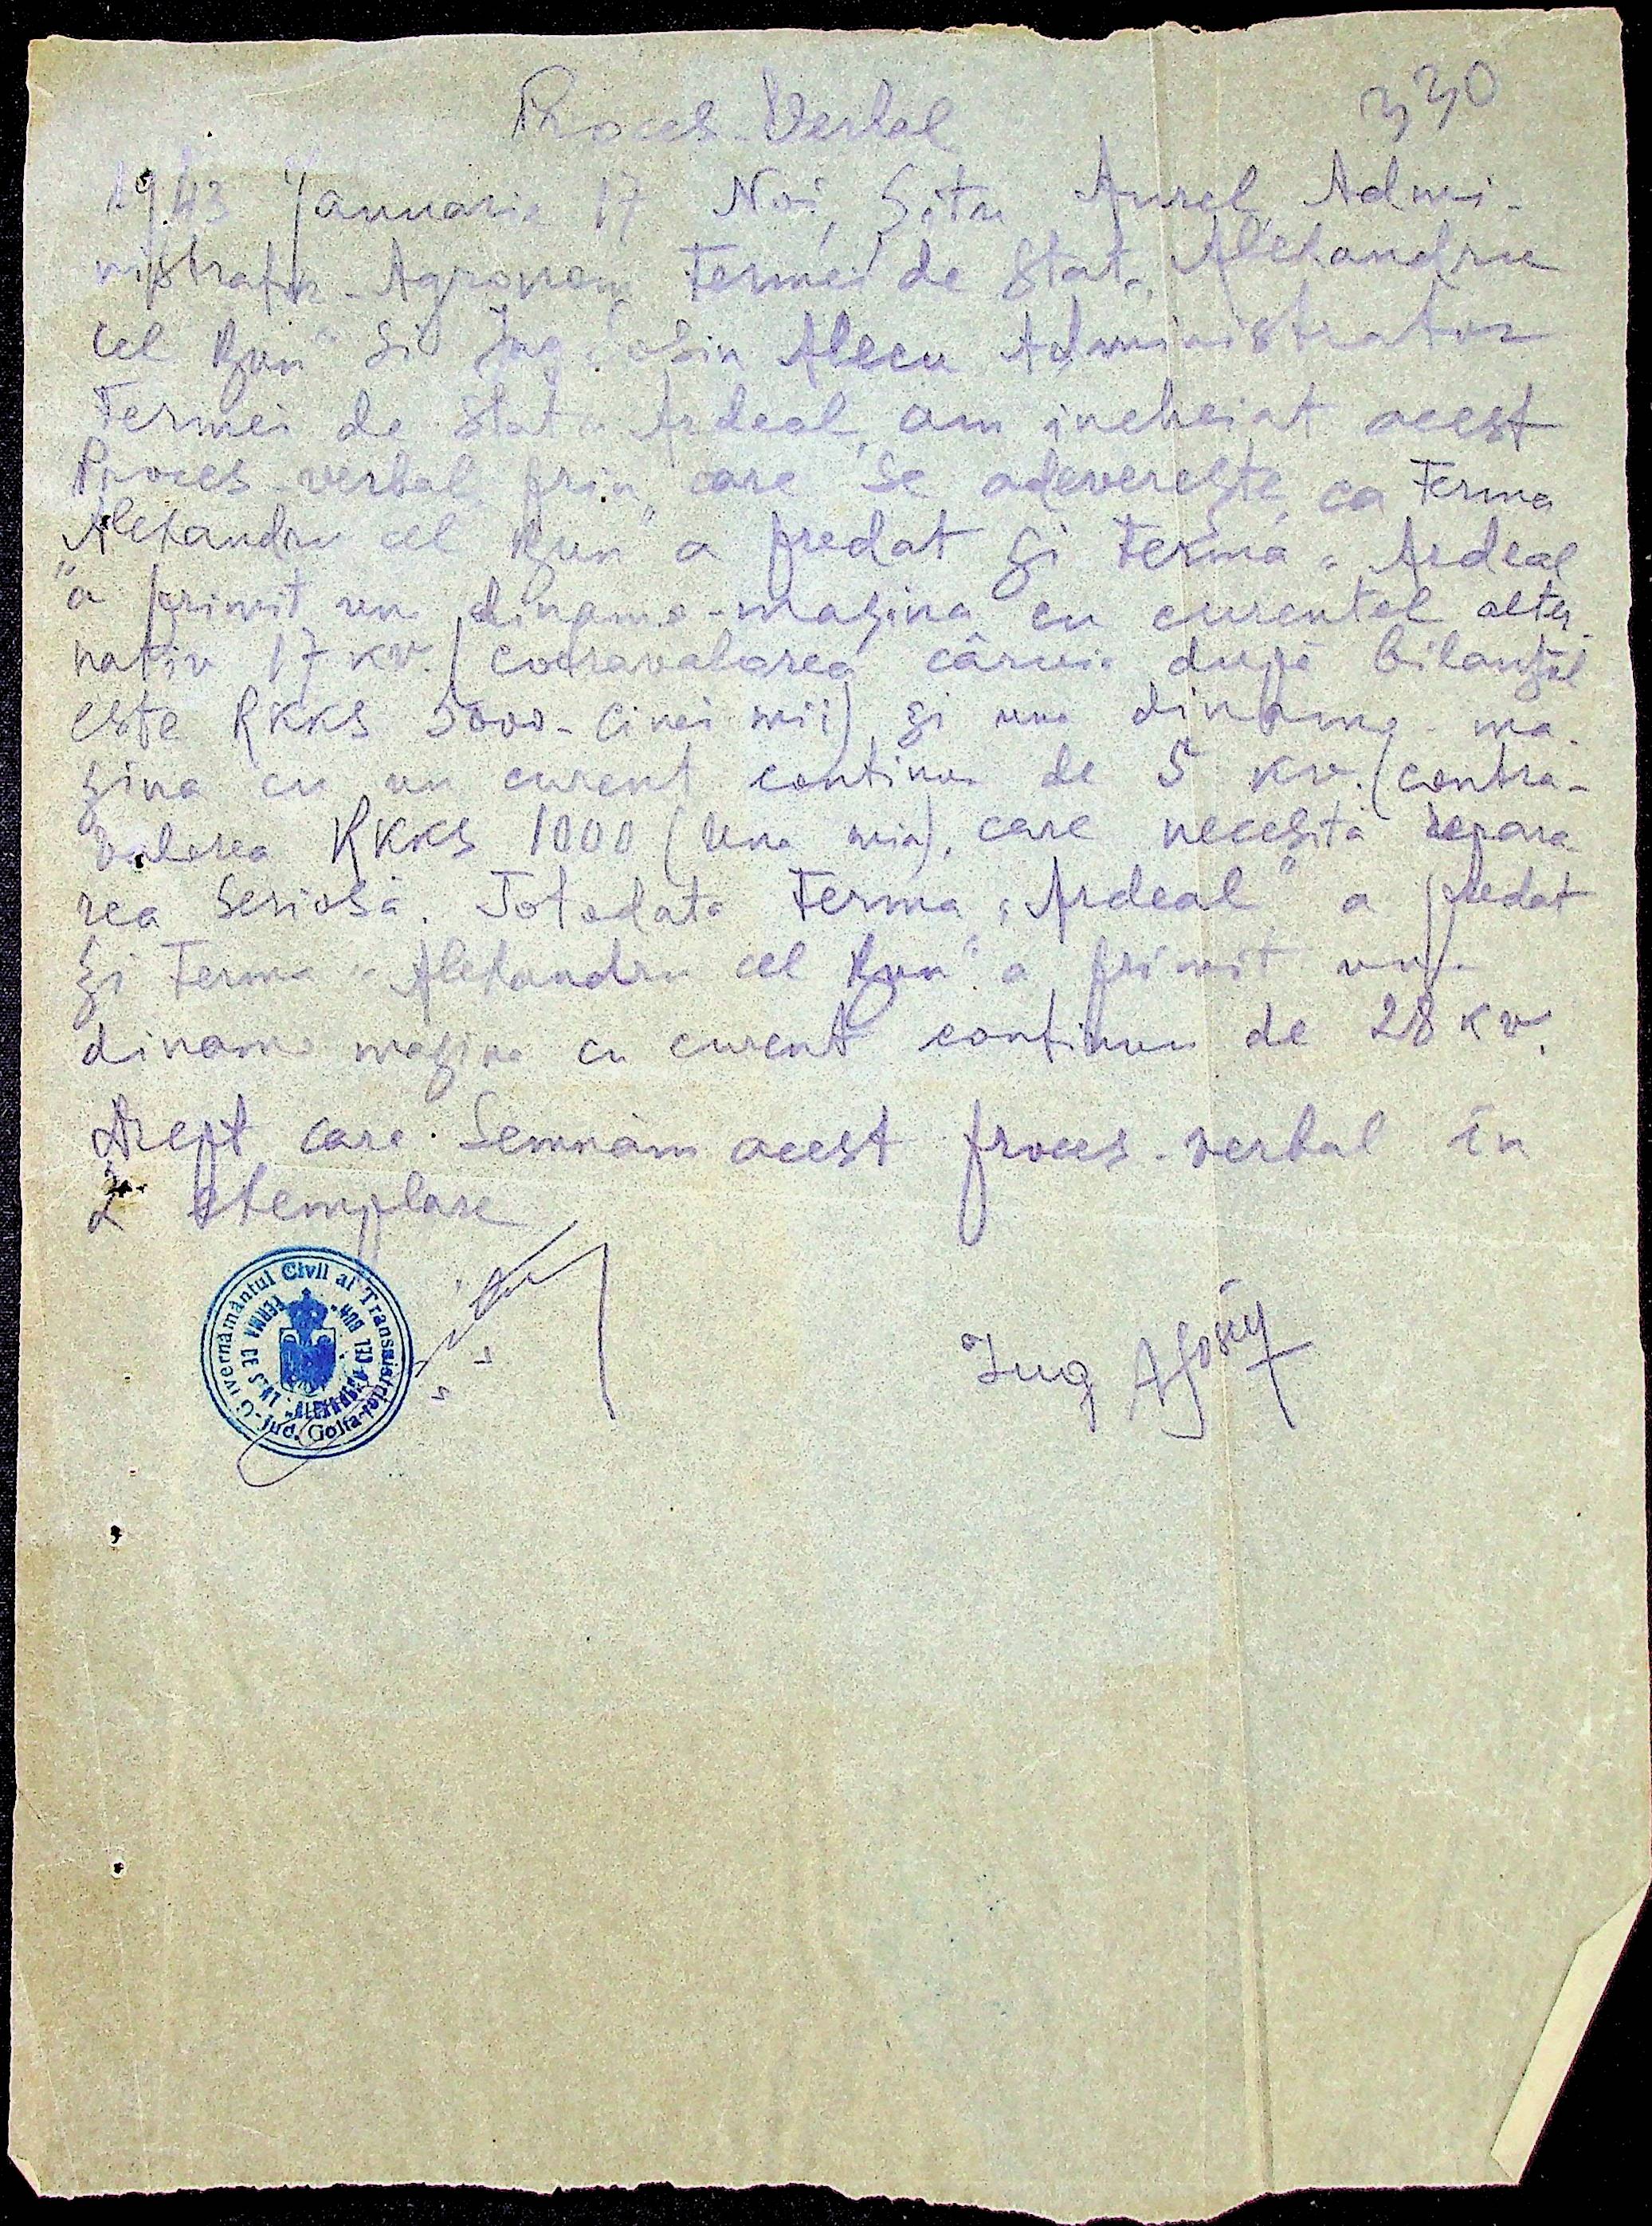 330
Proces-Verbal
1943 Januarie 17 Noi, Situ Aurel, Admi-
nistrator-Agronom Fermei de Stat „Alexandru
cel Bun" și Ing. Alecu Administrator
Fermei de Stat „Ardeal, am incheiat acest
Proces-verbal, prin care se adeverește, ca Ferma
„Alexandru cel Bun" a predat și Ferma „Ardeal
a primit un dinamo-mașina cu curentel alter-
nativ 17 kv. (contravalorea căruia după bilanțul
este RKKS 5000- Cinci mii) și una dinamo-ma-
șina cu un curent continuu de 5 kv. (contra-
valorea RKKS 1000 (Una mia), care necesită repara-
rea seriosă. Totodata Ferma „Ardeal" a predat
și Ferma „Alexandru cel Bun" a primit un
dinamo mașina cu curent continuu de 28 kv.
Drept care semnăm acest proces-verbal în
2 exemplare
Guvernământul Civil al Transnistriei
jud. Golta
FERMA DE STAT „ALEXANDRU CEL BUN"
Ing